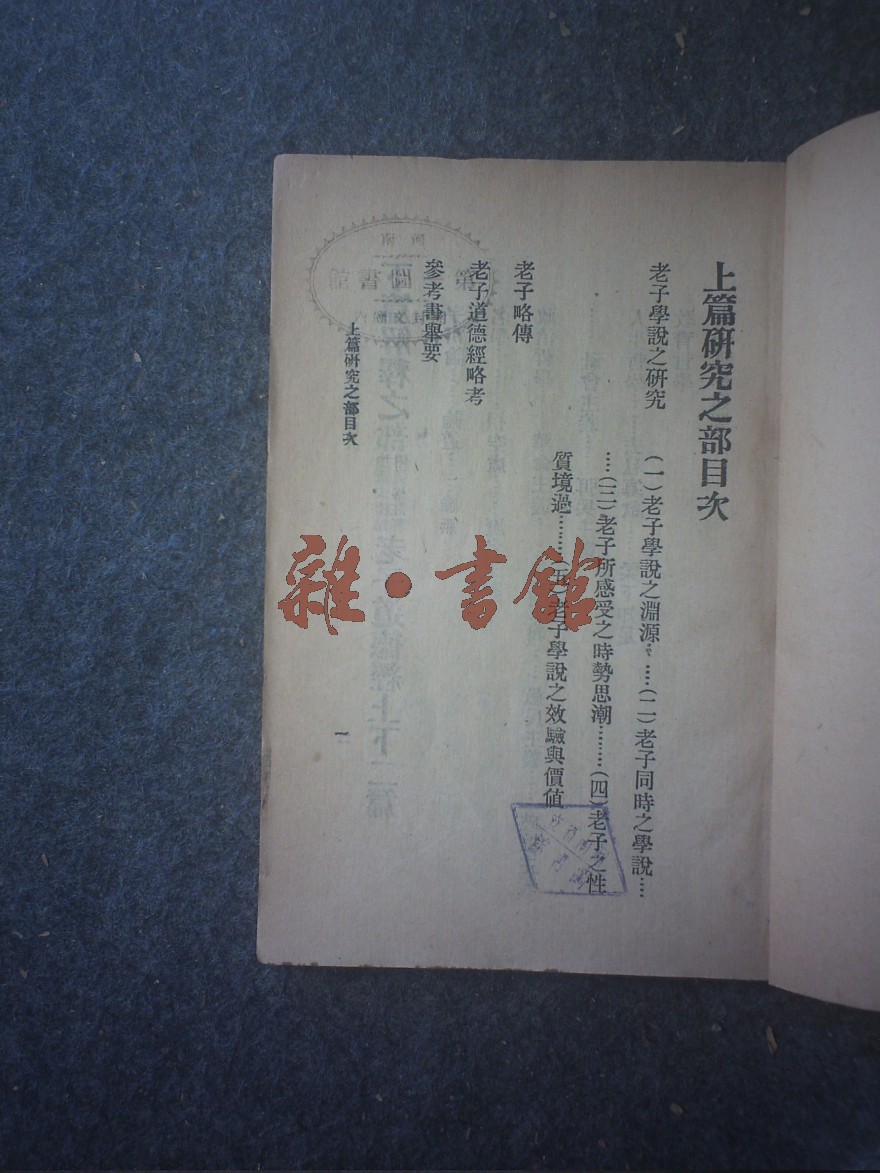 上篇研究之部目次
老子學說之研究
(一)老子學說之淵源……(二)老子同時之學說……
……(三)老子所感受之時勢思潮………(四)老子之性
質境遇………(五)老子學說之效驗與價値
老子略傳
老子道德經略考
參考書舉要
上篇研究之部目次
一
雜·書館